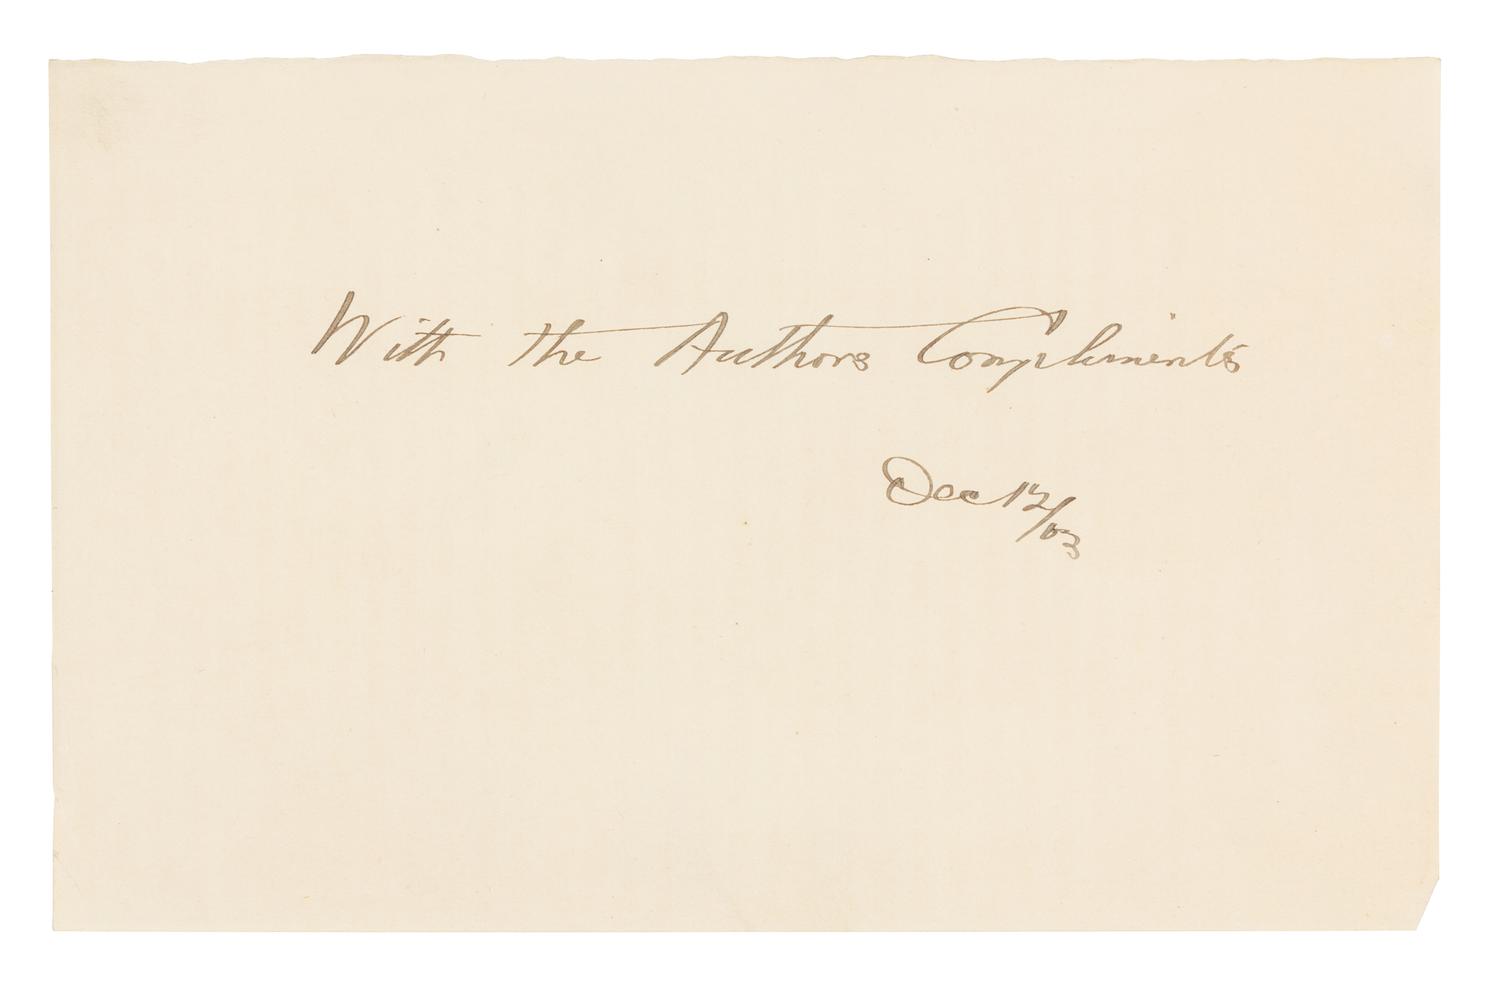 With the Authors Compliments
Dec 12/03